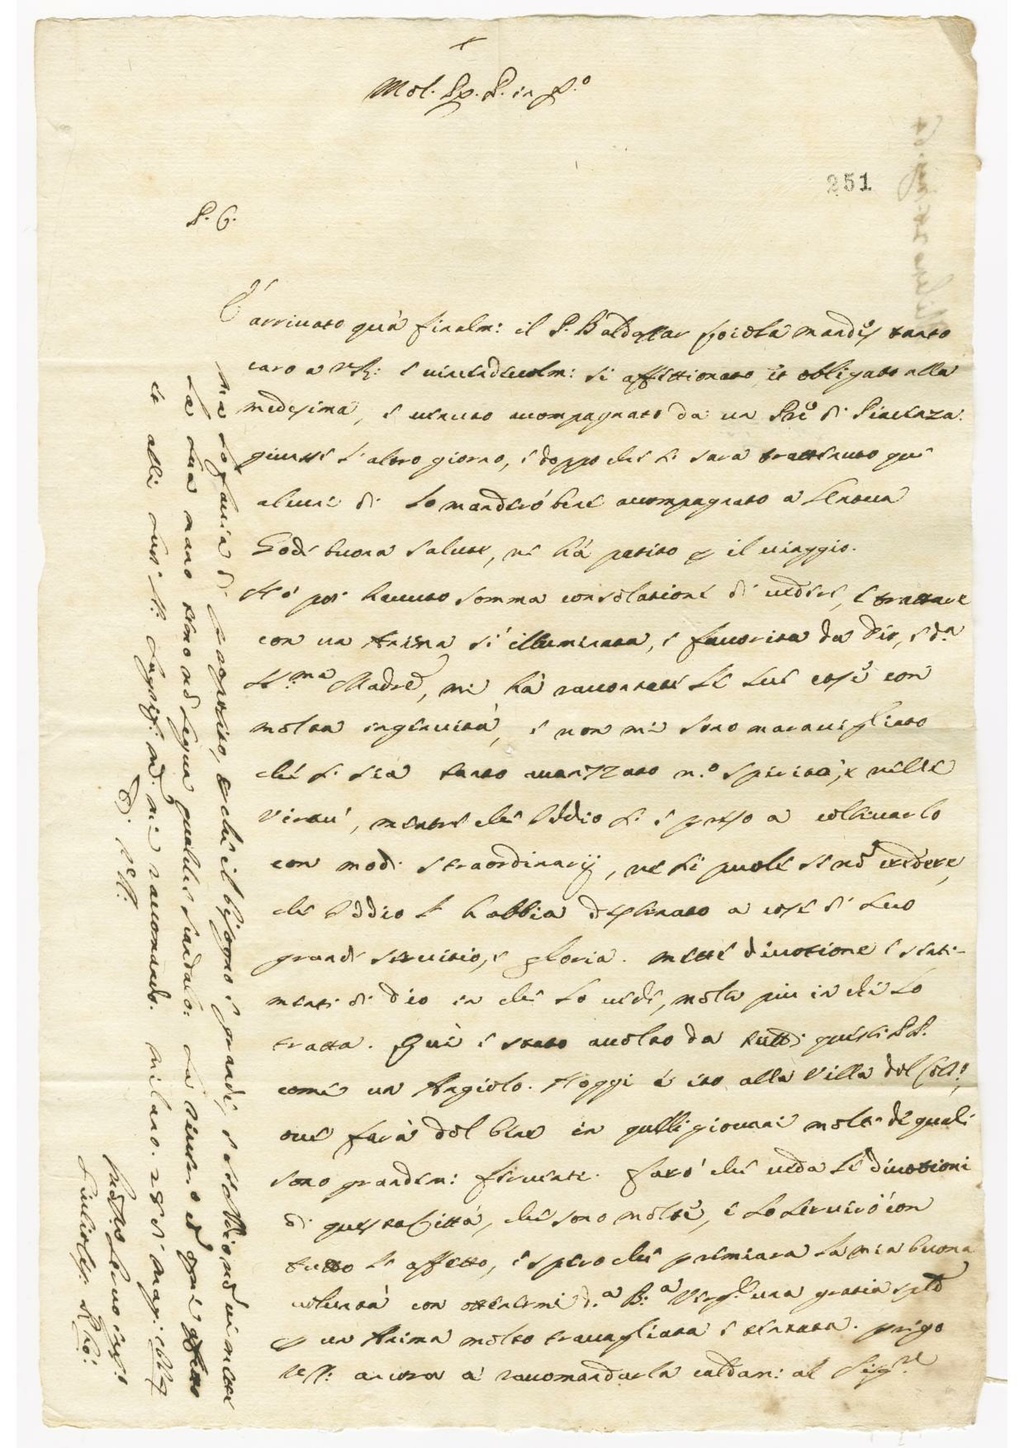 +
Mol. R. P. in X.º
251
P. C.
È arrivato quà finalm: il P. Baldassar Loiola Mandes tanto
caro a V.R: e vicendevolm: si affettionato, et obligato alla
medesima, è venuto accompagnato da un Pre di Piacenza.
giunse l'altro giorno, e doppo che si sarà trattenuto quì
alcuni dì lo manderò bene accompagnato a Genova
Gode buona salute, nè hà patito p il viaggio.
Hò poi havuto somma consolatione di vedere, e trattare
con un Anima sì illuminata, e favorita da Dio, e da
S.ma Madre, mi hà raccontate le sue cose con
molta ingenuità, e non mi sono maravigliato
che si sia tanto avanzato n.º spirito, e nelle
virtù, mentre che Iddio si è preso a coltivarlo
con modi straordinarij, ne si puole se nõ credere,
che Iddio l'habbia destinato a cose di suo
grande servitio, e gloria. mette divotione e senti-
menti di Dio in chi lo vede, molto più in chi lo
tratta. Quì è stato accolto da tutti questi PP.
come un Angiolo. Hoggi è ito alla Villa del Coll.º,
ove farà del bene in quelli giovani molti de quali
sono grandem: ferventi. farò che veda le divotioni
di questa Città, che sono molte, e lo servirò con
tutto l'affetto, e spero che premiarà la mia buona
volontà con ottenermi d.a B.a Verg. una gratia
p un Anima molto travagliata e tentata. prego
V.R: ancora a raccomandarla caldam: al Sig.re
ma lo faccia di proposito, che il bisogno è grande, e se Iddio nõ vi mette
la sua mano temo nõ segua qualche scandalo.
et alli suoi SS. mi raccomando. Milano. 28 di Mag.
Di V.R: